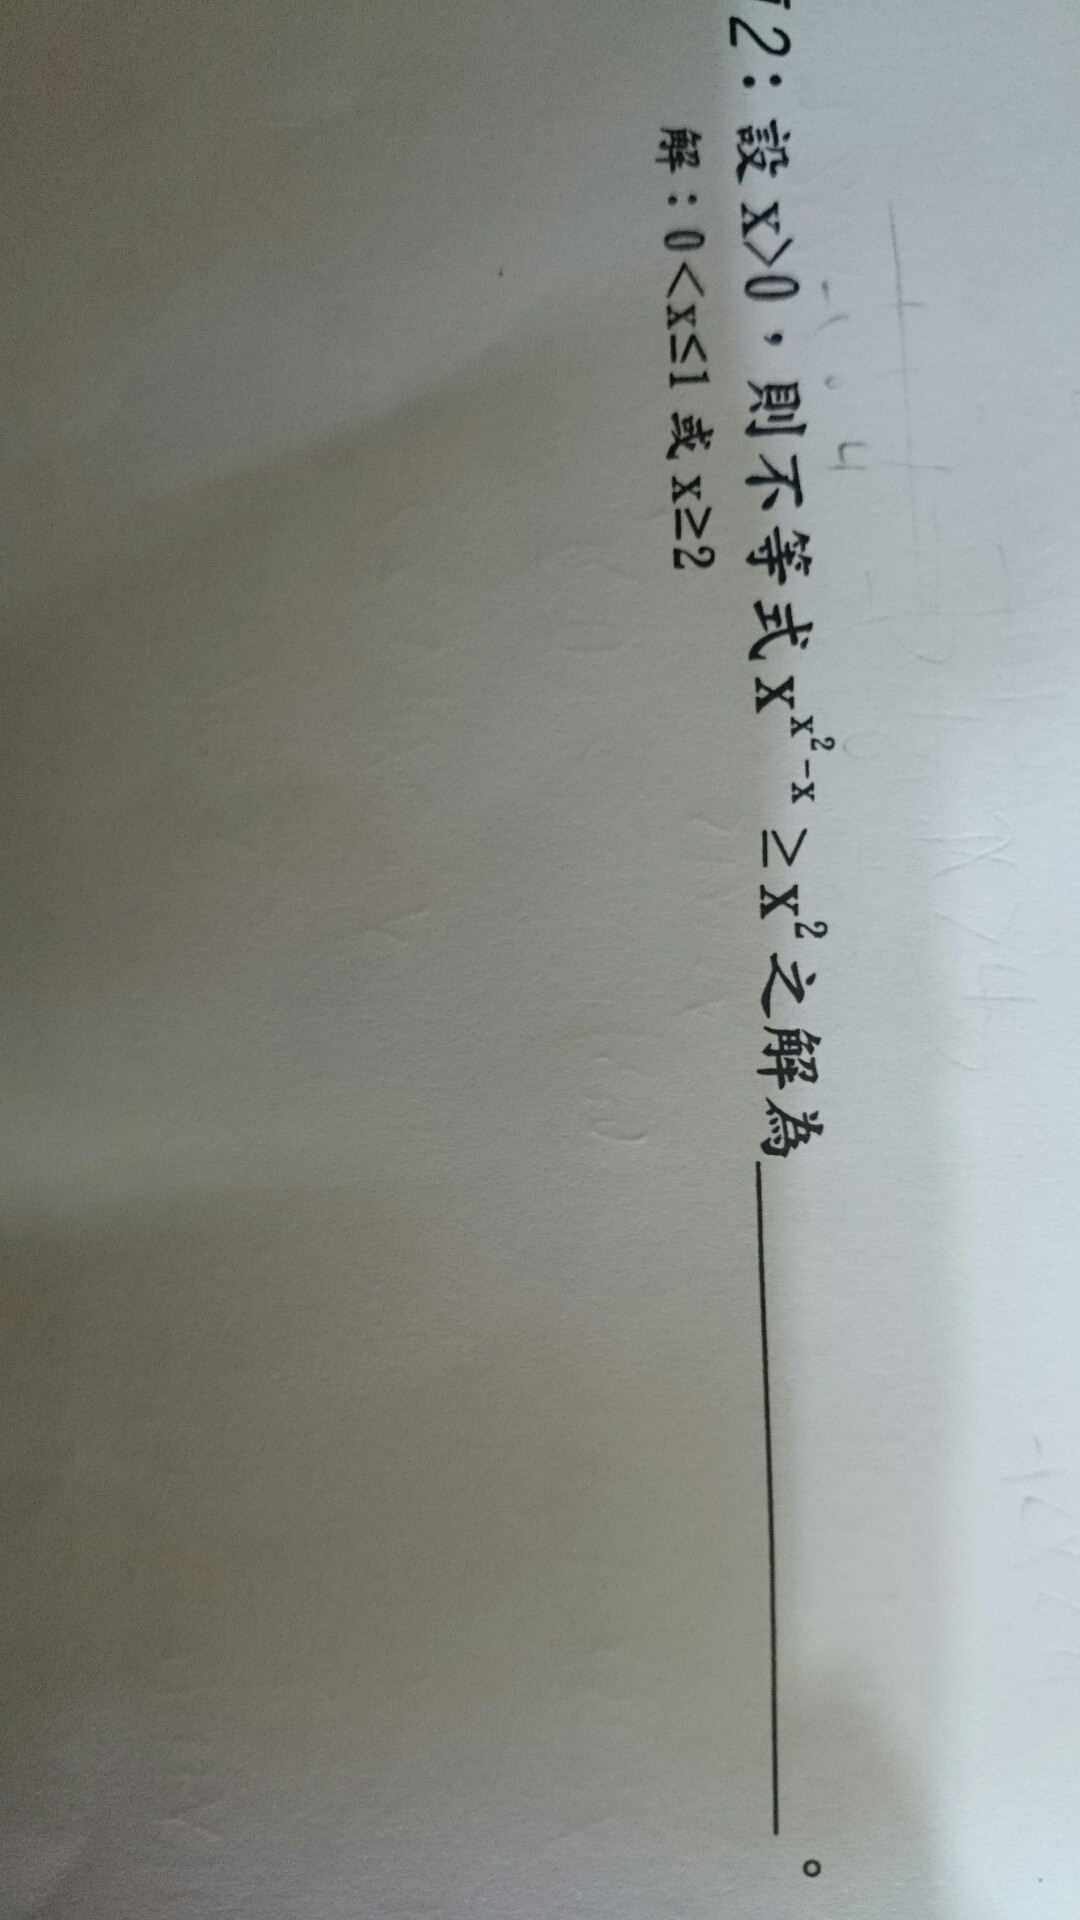 2:設 x>0,則不等式 x^{x^2-x} ≥ x^2 之解為____________。
解:0<x≤1 或 x≥2